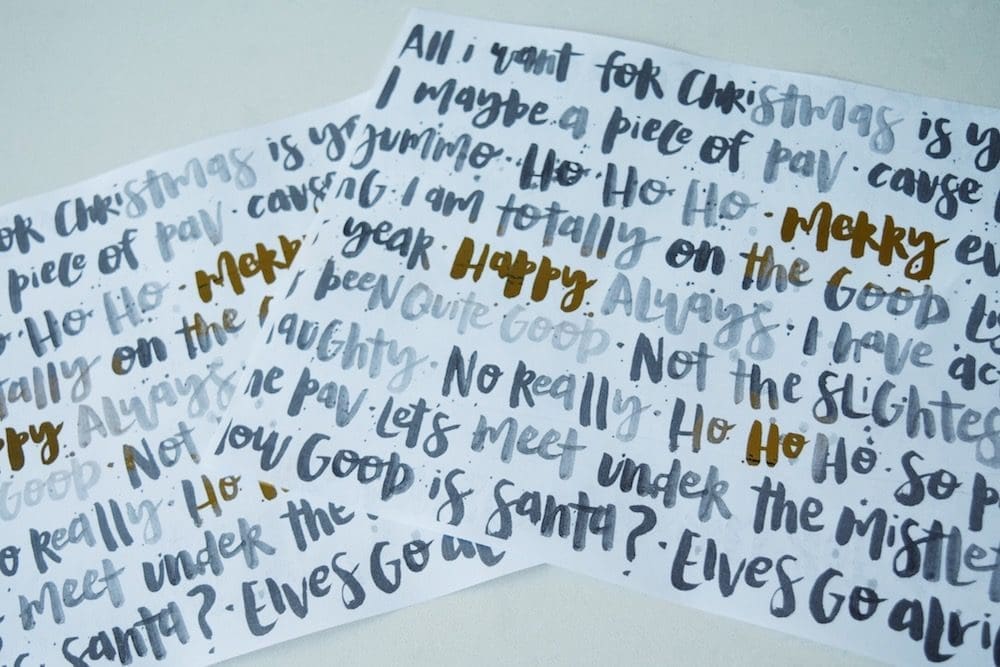 All i want for Christmas is y
I maybe a piece of pav · cause
yummo · Ho Ho Ho · Merry ev
NG · I am totally on the Good Li
year · Happy Always · I have ac
been Quite Good · Not the slightes
aughty · No really · Ho Ho Ho · So p
he pav · Lets meet under the mistlet
ow Good is santa? · Elves Go alri
or Christmas is y
piece of pav · caus
Ho Ho · Merr
tally on the
ppy Always
Good · Not
o really · Ho
meet under the
santa? · Elves Go al